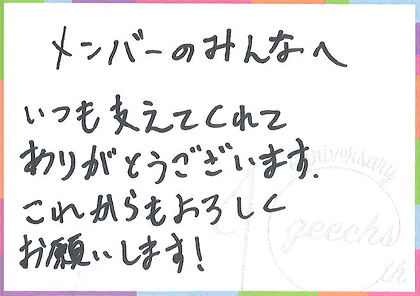 メンバーのみんなへ
いつも支えてくれて
ありがとうございます.
これからもよろしく
お願いします!
10th
anniversary
geechs